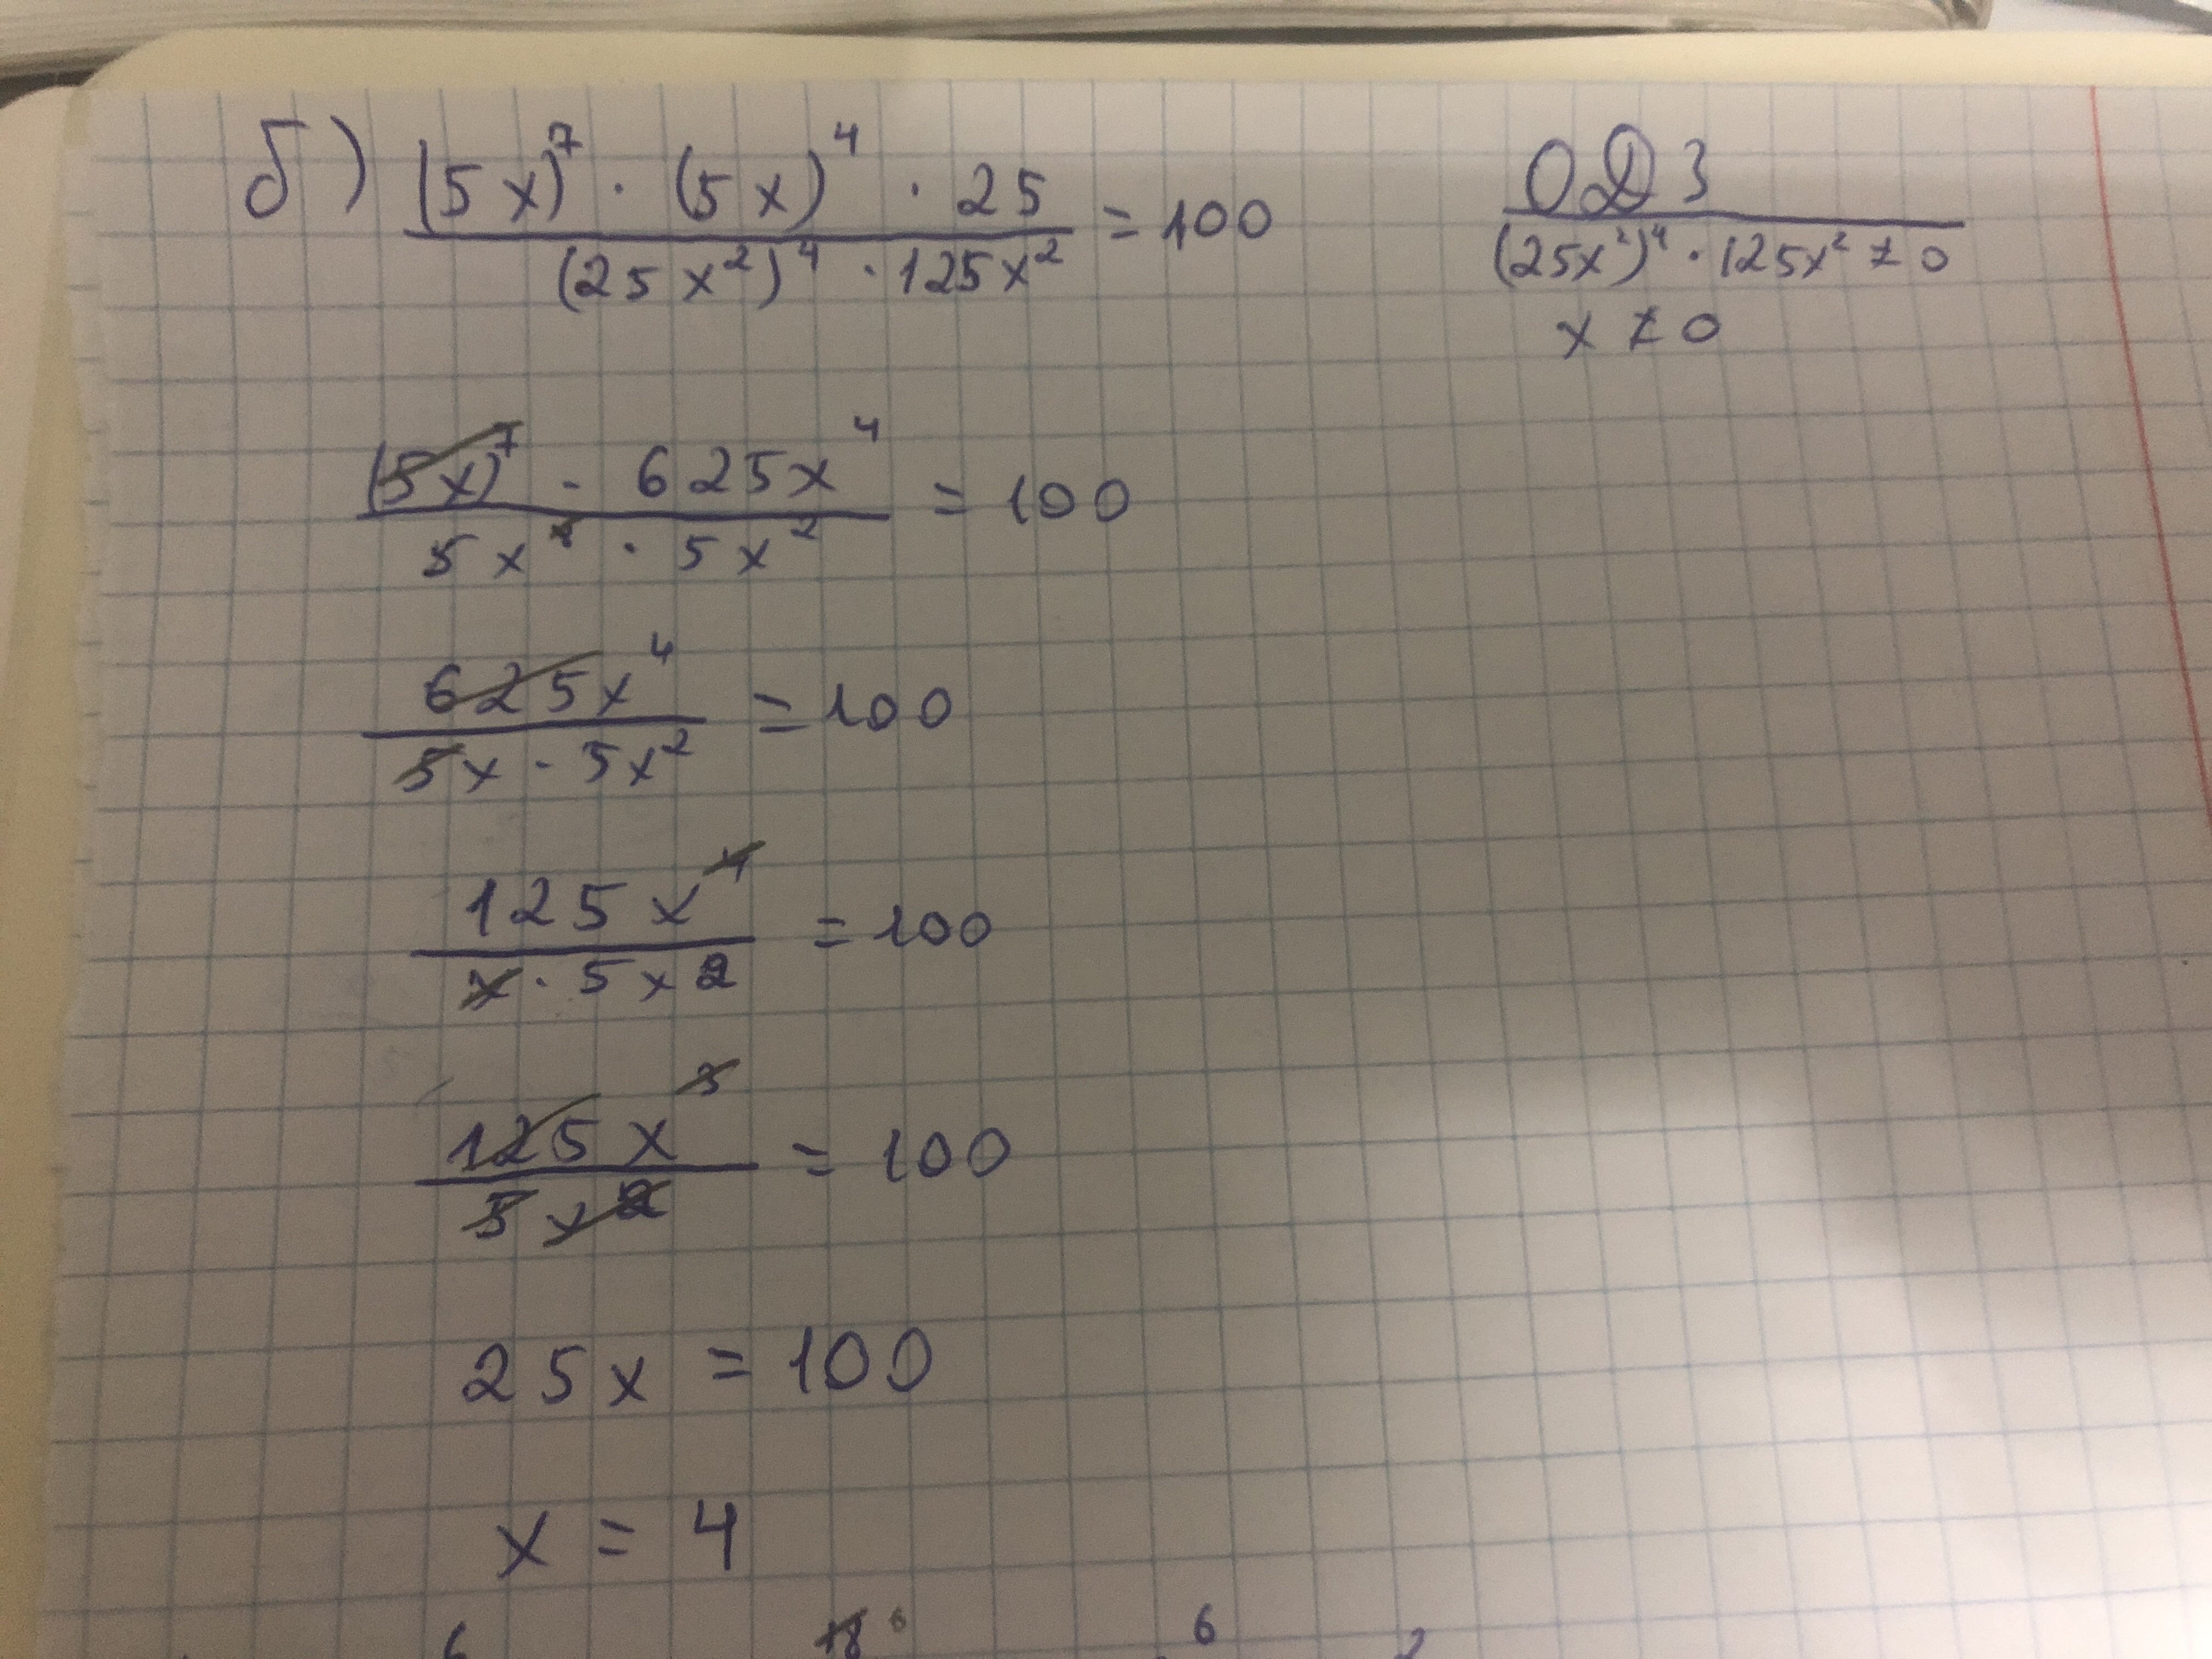 б) (5x)^7 · (5x)^4 · 25 / (25x^2)^4 · 125x^2 = 100
ОДЗ
(25x^2)^4 · 125x^2 ≠ 0
x ≠ 0
(5x)^7 · 625x^4 / 5x^8 · 5x^2 = 100
625x^4 / 5x · 5x^2 = 100
125x^4 / x · 5x^2 = 100
125x^3 / 5x^2 = 100
25x = 100
x = 4
6 18 6 6 2